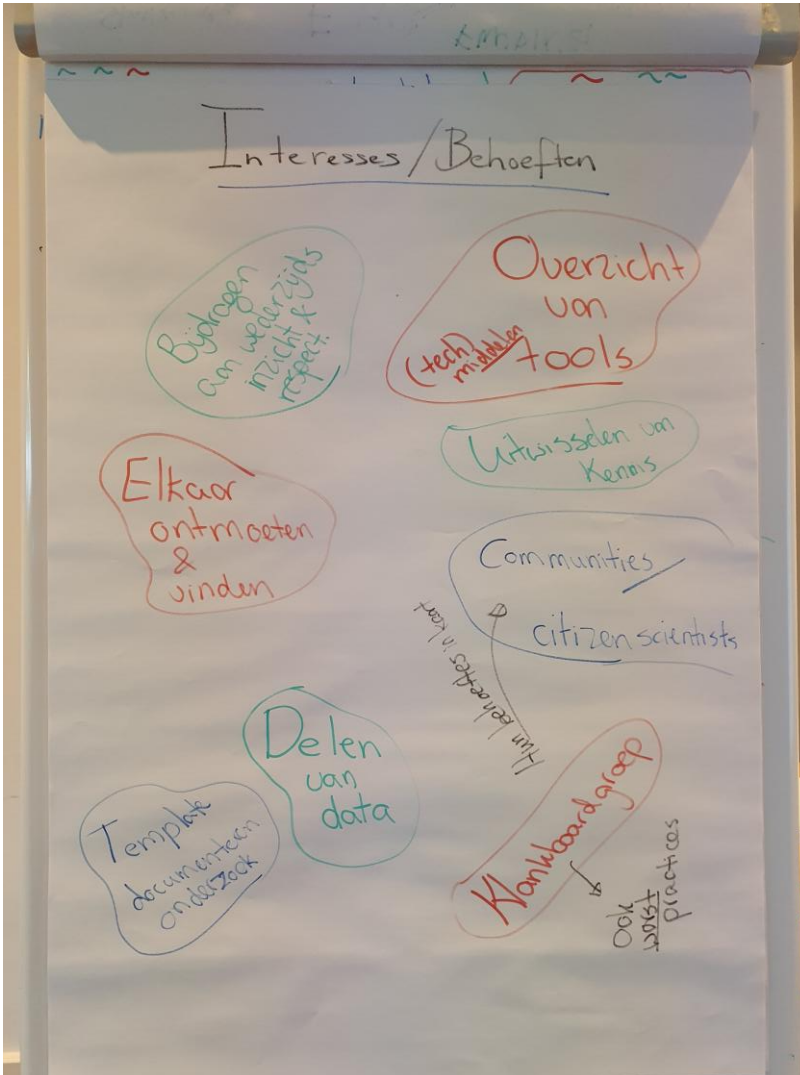 Interesses/Behoeften
Bijdragen
aan wederzijds
inzicht &
respect.
Overzicht
van
(tech) tools
middelen
Uitwisselen van
Kennis
Elkaar
ontmoeten
&
vinden
Communities/
citizen scientists
Hun behoeftes in kaart
Delen
van
data
Template
documenteren
onderzoek
Klankboardgroep
Ook
worst
practices